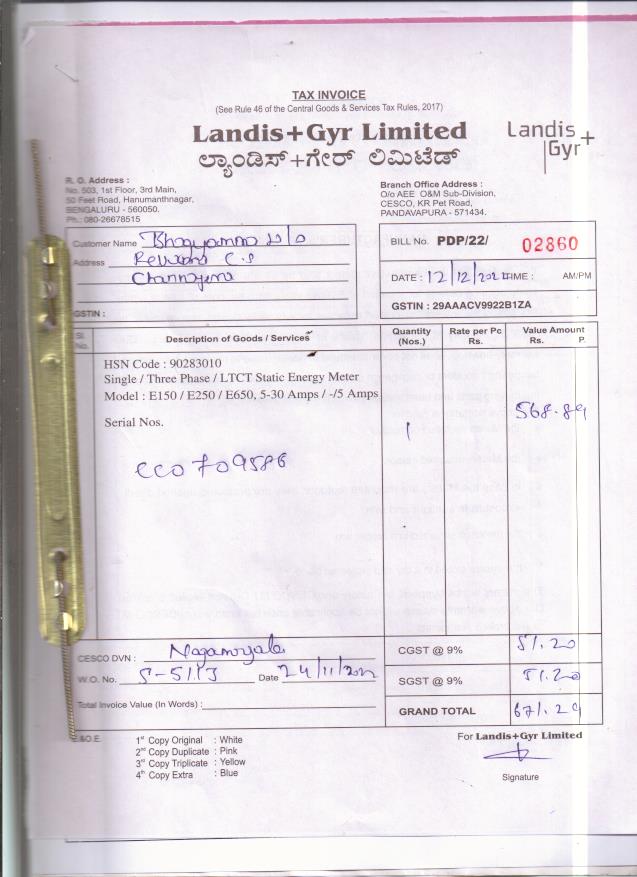 TAX INVOICE
(See Rule 46 of the Central Goods & Services Tax Rules, 2017)
Landis+Gyr Limited
ಲ್ಯಾಂಡಿಸ್+ಗೇರ್ ಲಿಮಿಟೆಡ್
Landis+
Gyr
R. O. Address :
No. 503, 1st Floor, 3rd Main,
50 Feet Road, Hanumanthnagar,
BENGALURU - 560050.
Ph.: 080-26678515
Branch Office Address :
O/o AEE O&M Sub-Division,
CESCO, KR Pet Road,
PANDAVAPURA - 571434.
Customer Name Bhagyamma
Address C.S
GSTIN :
BILL No. PDP/22/ 02860
DATE : 12/12/2022 TIME : AM/PM
GSTIN : 29AAACV9922B1ZA
Sl. No. Description of Goods / Services Quantity (Nos.) Rate per Pc Rs. Value Amount Rs. P.
HSN Code : 90283010
Single / Three Phase / LTCT Static Energy Meter
Model : E150 / E250 / E650, 5-30 Amps / -/5 Amps
Serial Nos.
1 568-89
CC0709586
CESCO DVN : Nagamangala
W.O. No. S-5113 Date 24/11/2022
Total Invoice Value (In Words) :
CGST @ 9% 51.20
SGST @ 9% 51.20
GRAND TOTAL 671.29
E.&O.E.
1st Copy Original : White
2nd Copy Duplicate : Pink
3rd Copy Triplicate : Yellow
4th Copy Extra : Blue
For Landis+Gyr Limited
Signature